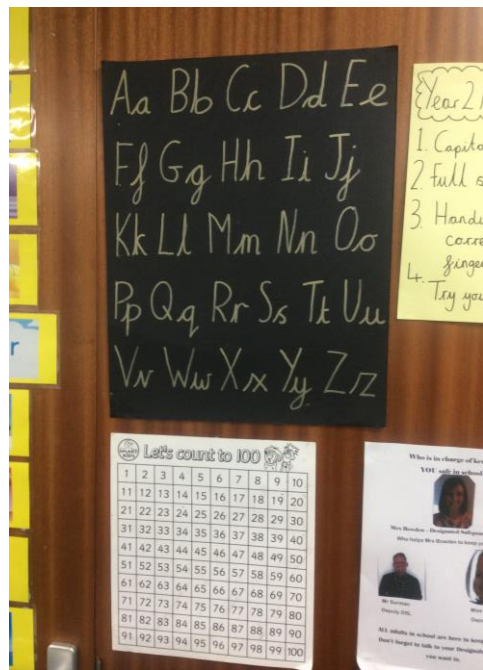 Aa Bb Cc Dd Ee
Ff Gg Hh Ii Jj
Kk Ll Mm Nn Oo
Pp Qq Rr Ss Tt Uu
Vv Ww Xx Yy Zz
Year 2
1. Capita
2. Full s
3. Handw
corre
finge
4.
Try you
r
Let's count to 100
1 2 3 4 5 6 7 8 9 10
11 12 13 14 15 16 17 18 19 20
21 22 23 24 25 26 27 28 29 30
31 32 33 34 35 36 37 38 39 40
41 42 43 44 45 46 47 48 49 50
51 52 53 54 55 56 57 58 59 60
61 62 63 64 65 66 67 68 69 70
71 72 73 74 75 76 77 78 79 80
81 82 83 84 85 86 87 88 89 90
91 92 93 94 95 96 97 98 99 100
Who is in charge of kee
YOU safe in school
Mrs Bowden - Designated Safegua
Who helps Mrs Bowden to keep yo
Mr
Deputy DSL
Miss
Depu
ALL adults in school are here to keep
Don't forget to talk to your Designate
you want to.